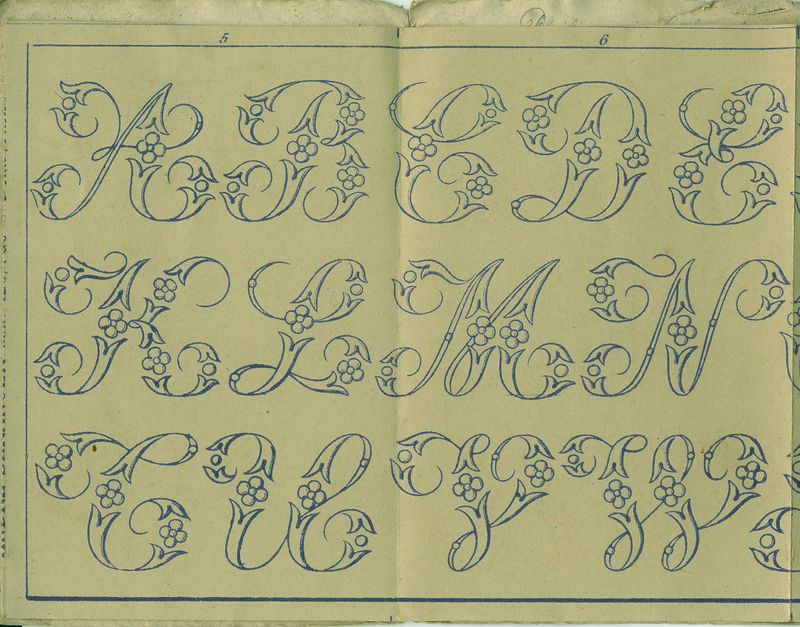 5 6
A B C D E
K L M N
T U V W